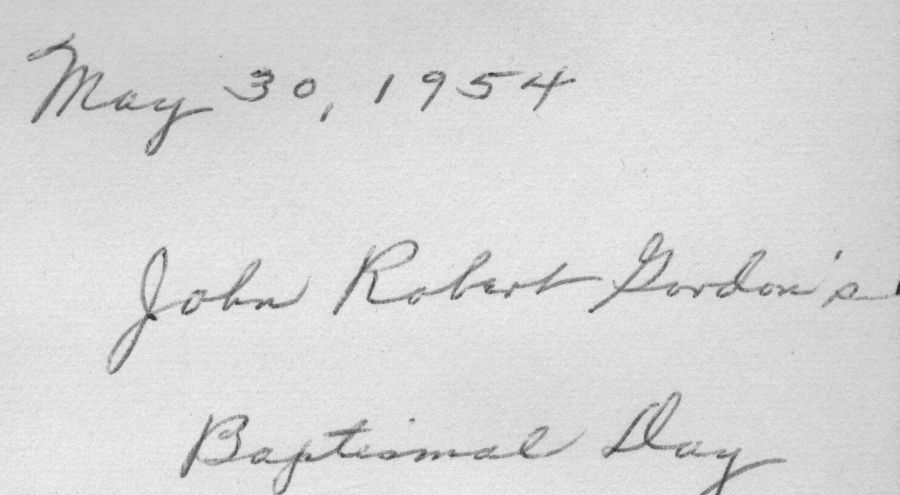 May 30, 1954
John Robert Gordon's
Baptismal Day